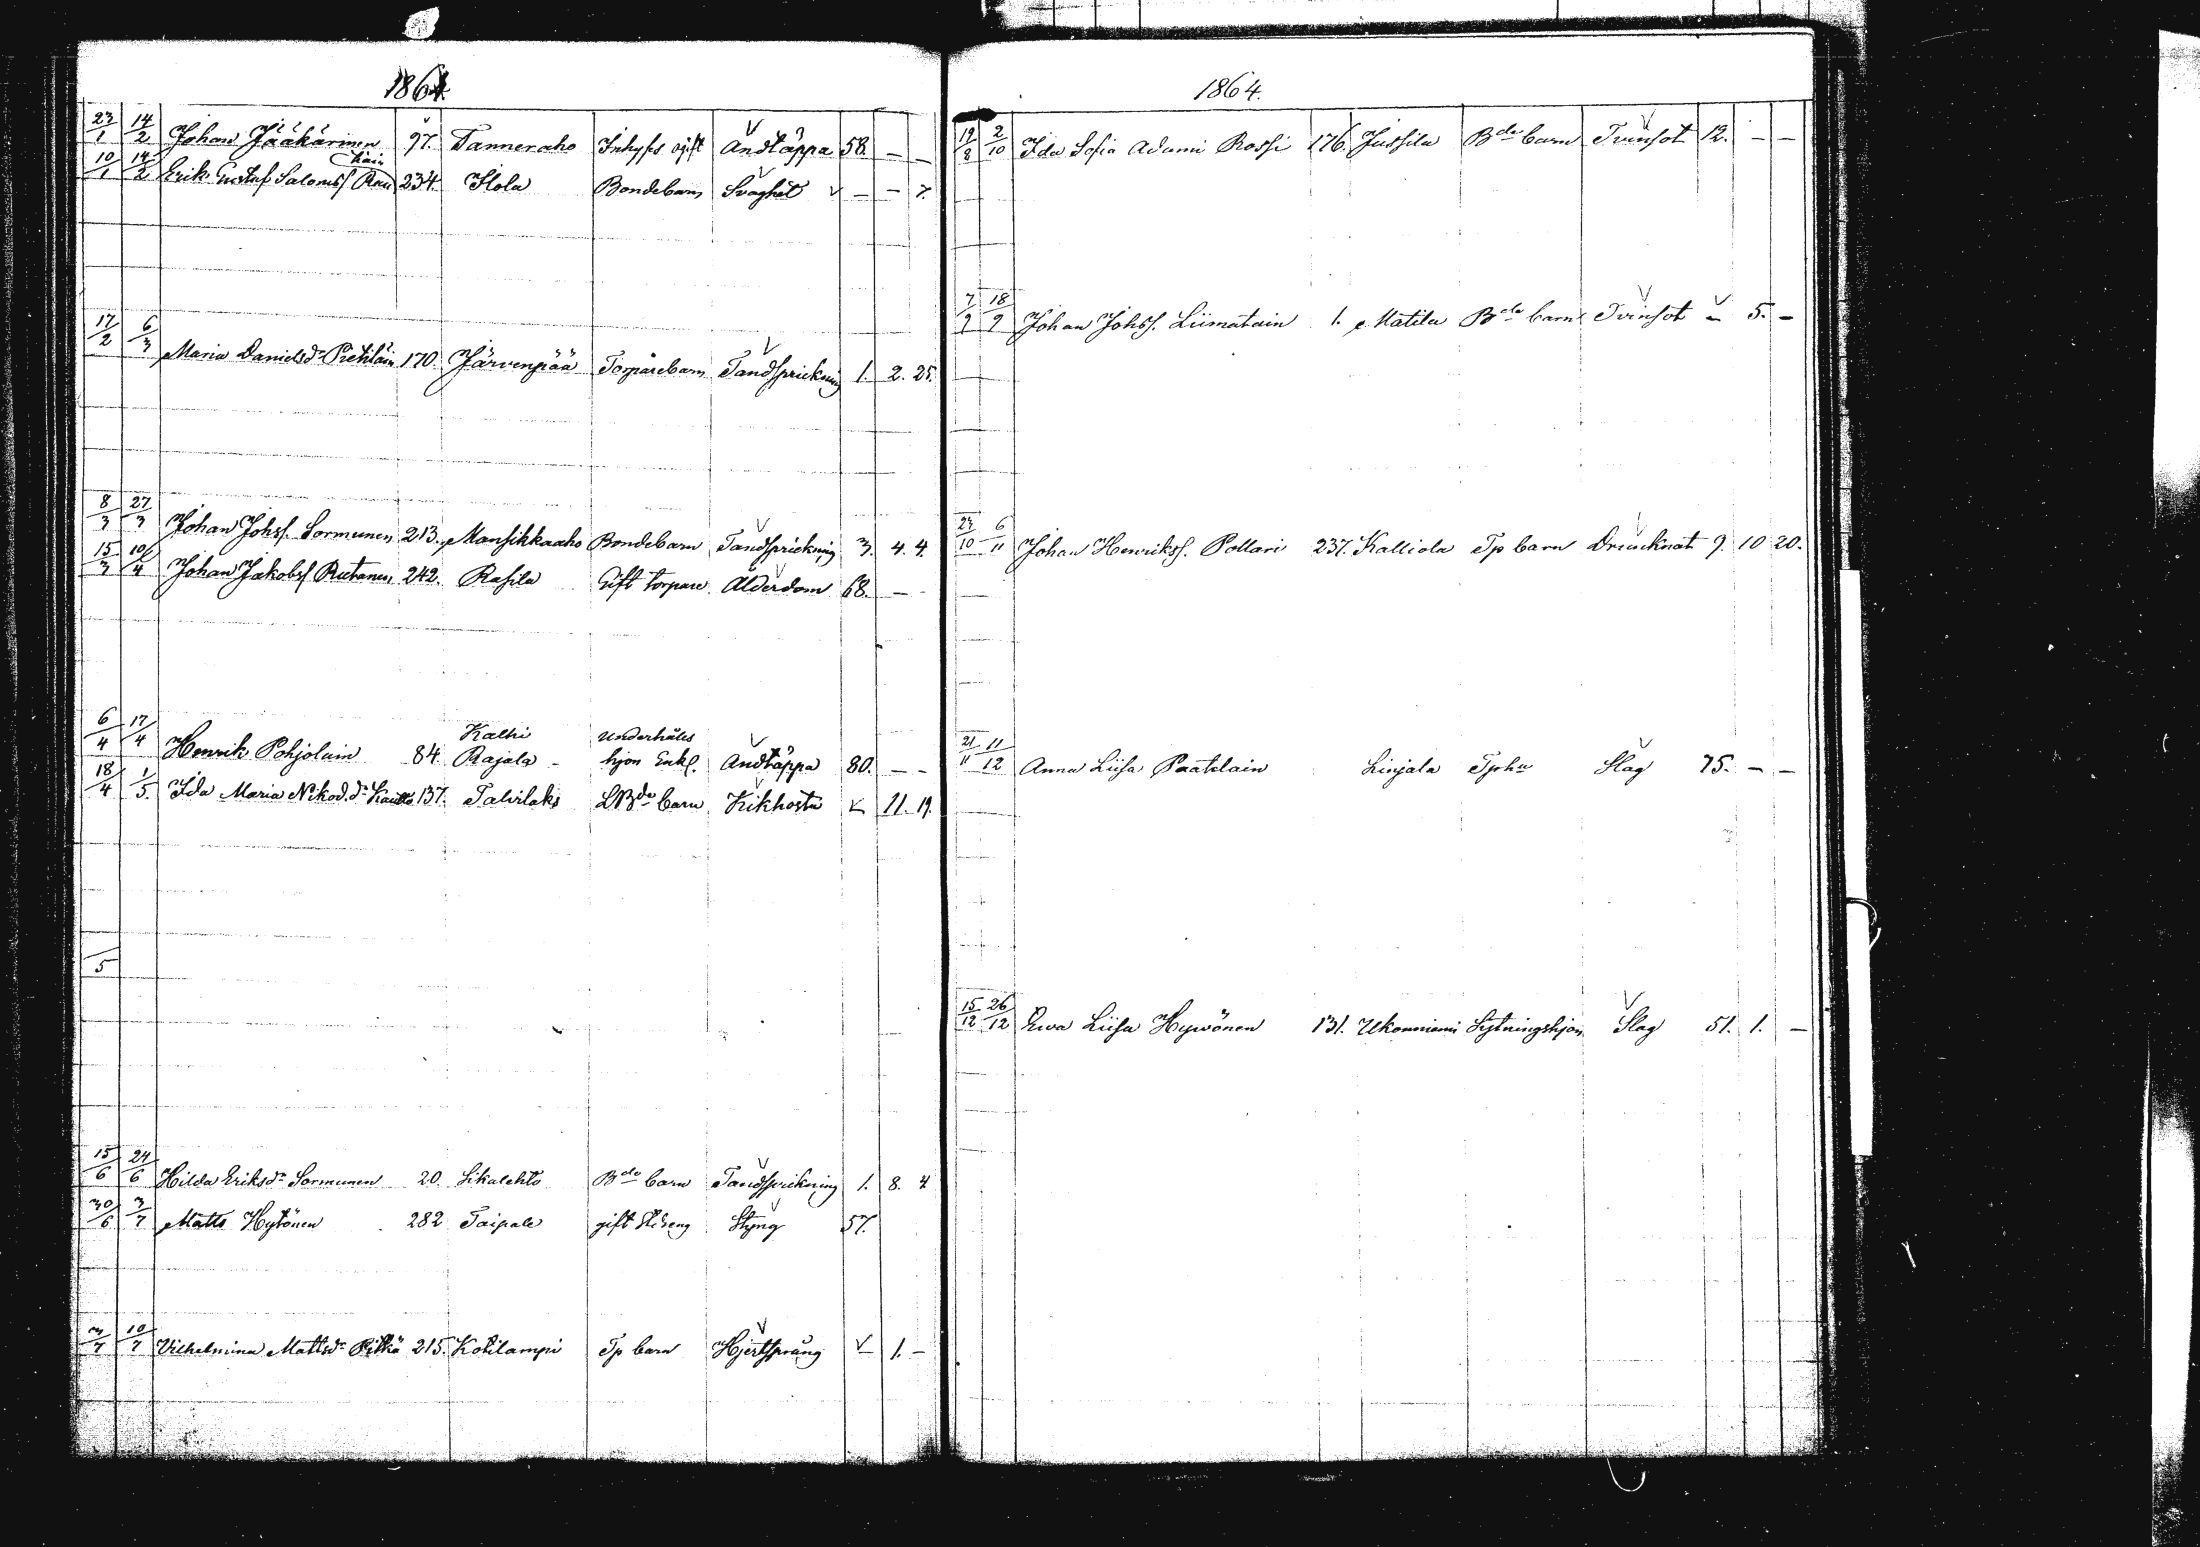 1864.
23/1 14/2 Johan Jääkärinen 97. Tanneraho Inhyss gift Andtäppa 58. — —
10/1 14/2 Erik Gustaf Salomss Rau 234. Ilola Bondebarn Svaghet — — 7.
17/2 6/3 Maria Danielsdr 170. Järvenpää Torparebarn Tandsprickning 1. 2. 25.
8/3 27/3 Johan Johss. Sormunen 213. Mansikkaaho Bondebarn Tandsprickning 3. 4. 4.
15/3 10/4 Johan Jakobss Rutanen 242. Rasila Gift torpare Ålderdom 68. —
Kalhi underhålls
6/4 17/4 Henrik Pohjolain 84. Rajala hjon Enkl. Andtäppa 80. — —
18/4 1/5. Ida Maria Nikod.dr 137. Talvilaks LBde barn Kikhosta 11. 19.
/5
15/6 24/6 Hilda Eriksdr Sormunen 20. Sikalehto Bde barn Tandsprickning 1. 8. 4
30/6 3/7 Matts Hytönen 282 Taipale gift Styng 57.
3/7 10/7 Vilhelmina Mattsdr Pitkä 215. Kotilampi Tp barn Hjertsprång 1. —
1864.
19/8 2/10 Ida Sofia Adami Rossi 176. Jussila Bde barn Tvinsot 12. — —
7/9 18/9 Johan Johss. Liimatain 1. Matila Bde barn Tvinsot — 5. —
23/10 6/11 Johan Henrikss. Pollari 237. Kalliola Tp barn Drunknat 9. 10 20.
21/11 11/12 Anna Liisa Paatelain Linjala Tphu Slag 75. — —
15/12 26/12 Ewa Liisa Hywönen 131. Ukonniemi Sytningshjon Slag 51. 1. —